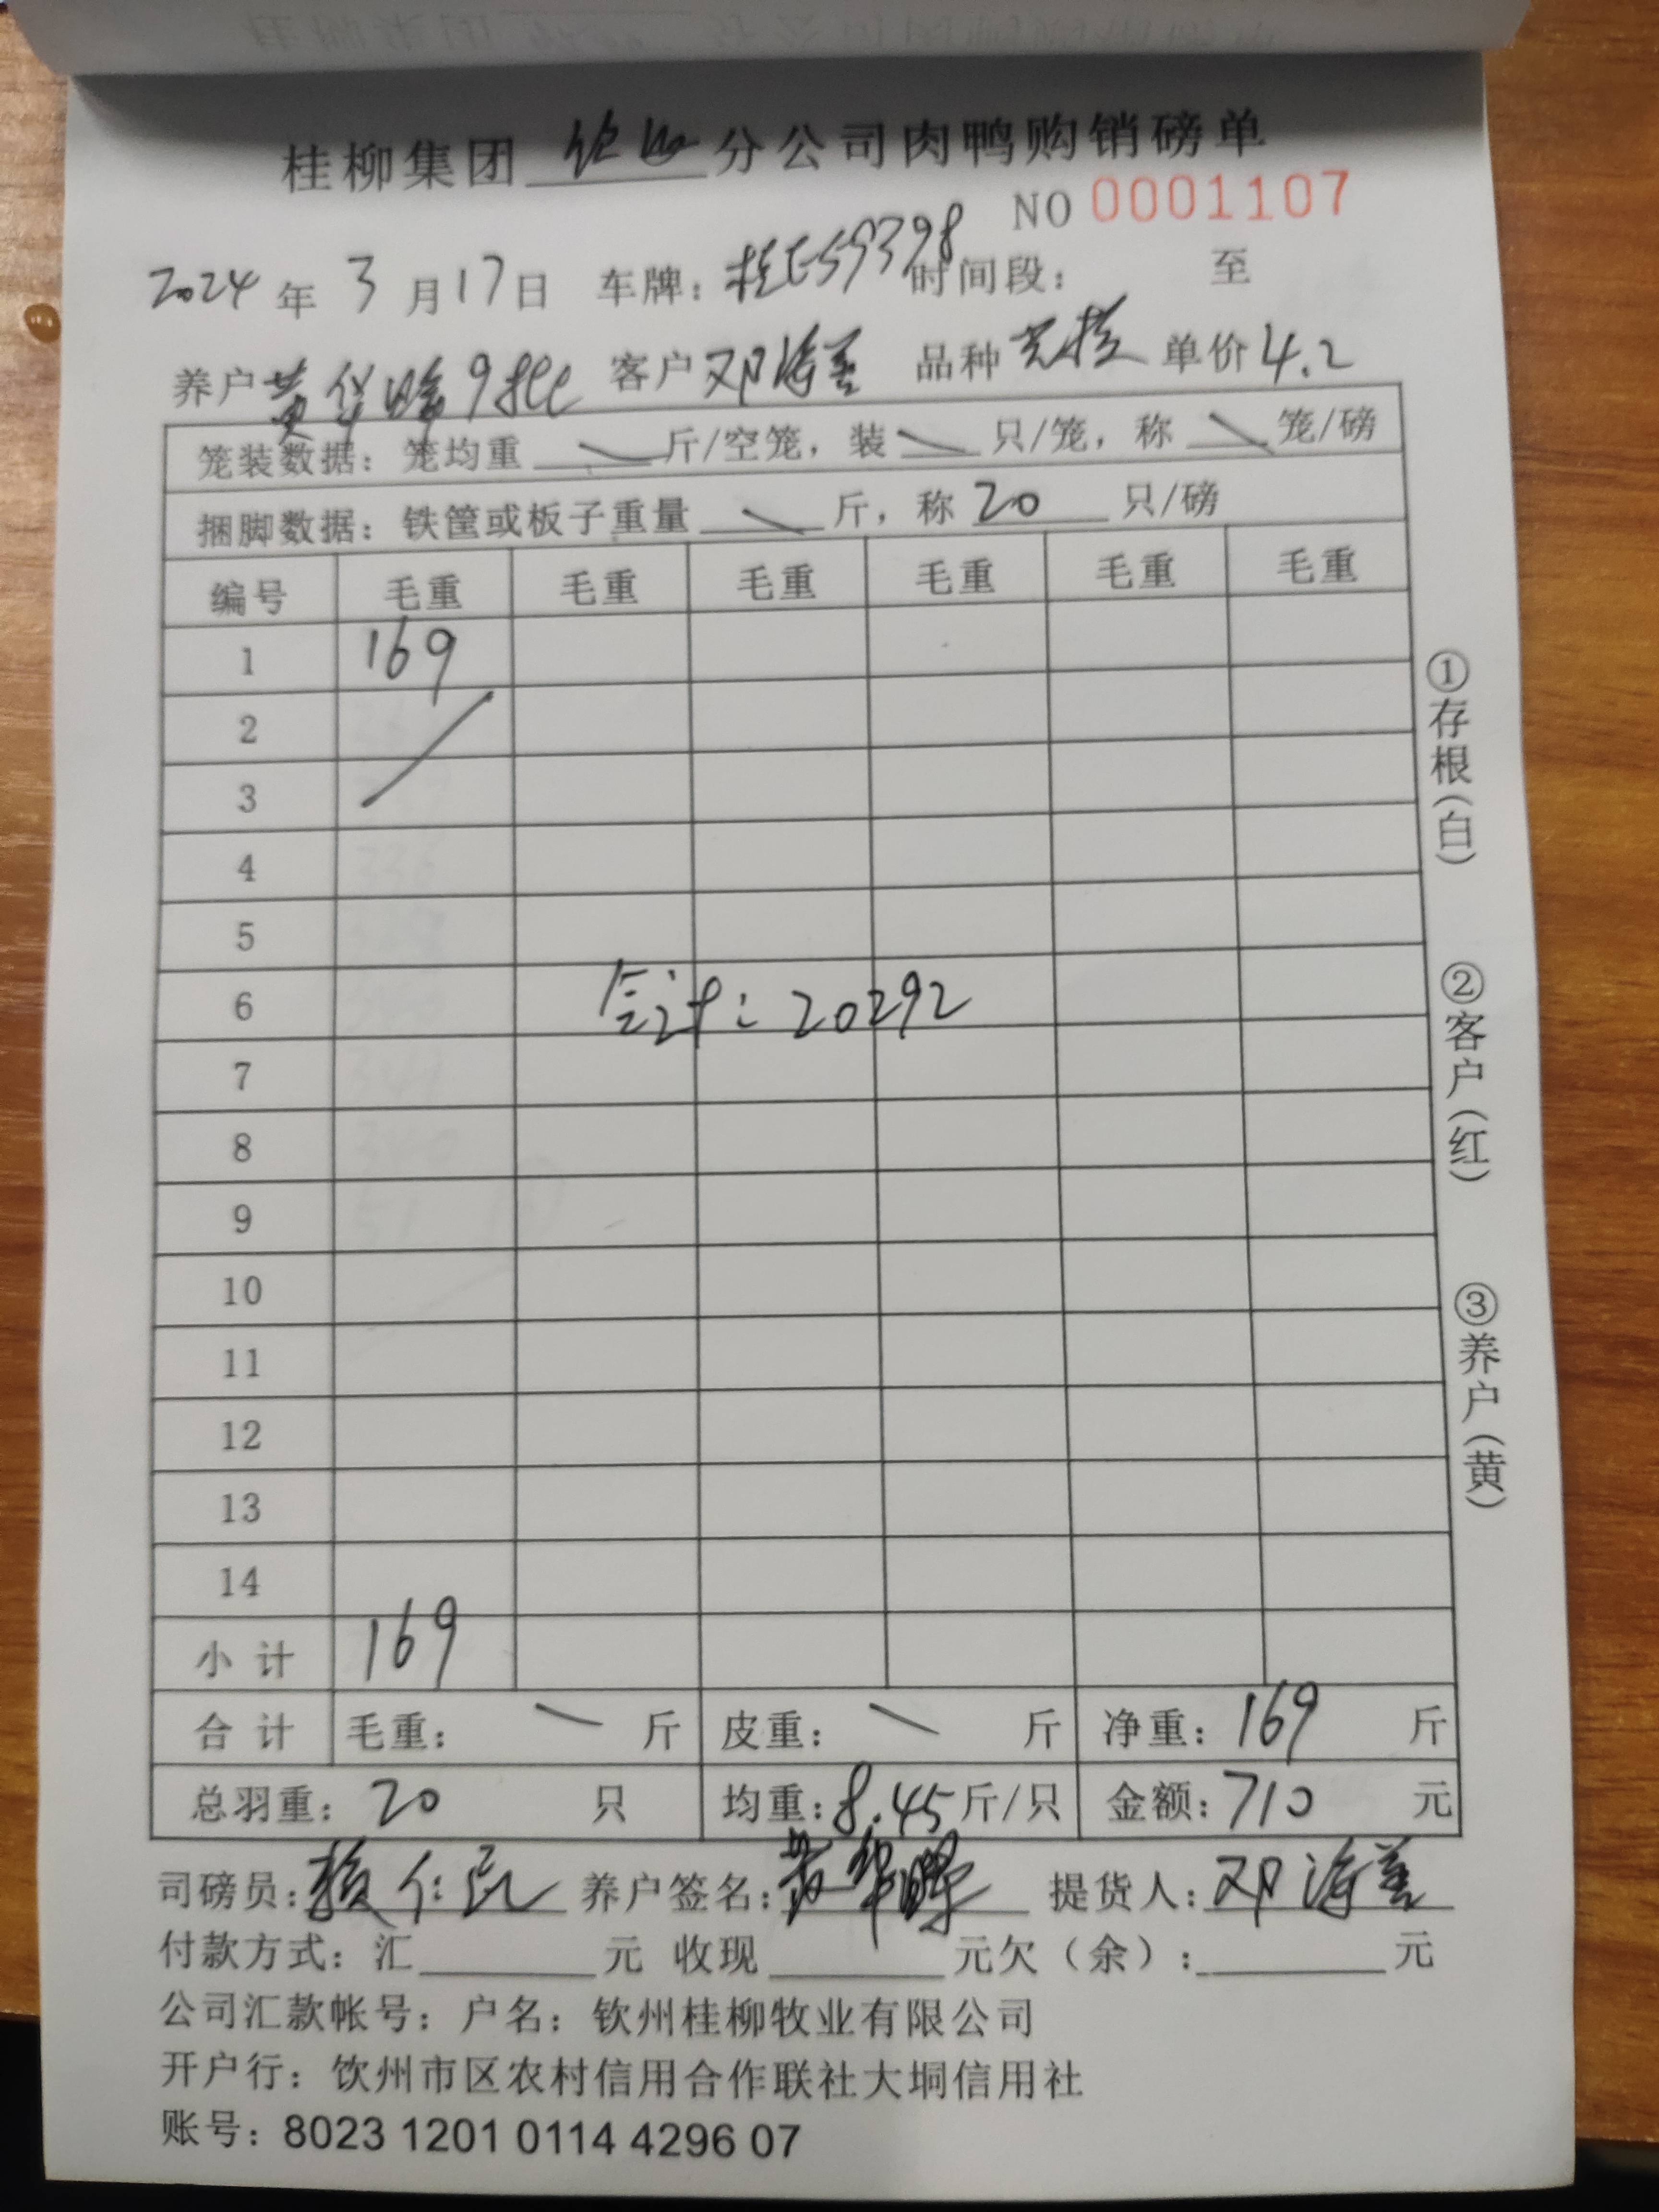 桂柳集团 钦州 分公司肉鸭购销磅单
NO 0001107
2024 年 3 月 17 日 车牌：桂E59398 时间段： 至
养户 黄华 9批 客户 邓海善 品种 单价 4.2
笼装数据：笼均重 \ 斤/空笼，装 \ 只/笼，称 \ 笼/磅
捆脚数据：铁筐或板子重量 \ 斤，称 20 只/磅
编号 毛重 毛重 毛重 毛重 毛重 毛重
1 169
2
3
4
5
6 合计：20292
7
8
9
10
11
12
13
14
小 计 169
合 计 毛重： \ 斤 皮重： \ 斤 净重：169 斤
总羽重：20 只 均重：8.45 斤/只 金额：710 元
司磅员： 养户签名：黄华 提货人：邓海善
付款方式：汇 元 收现 元欠（余）： 元
公司汇款帐号：户名：钦州桂柳牧业有限公司
开户行：钦州市区农村信用合作联社大垌信用社
账号：8023 1201 0114 4296 07
①存根（白）
②客户（红）
③养户（黄）